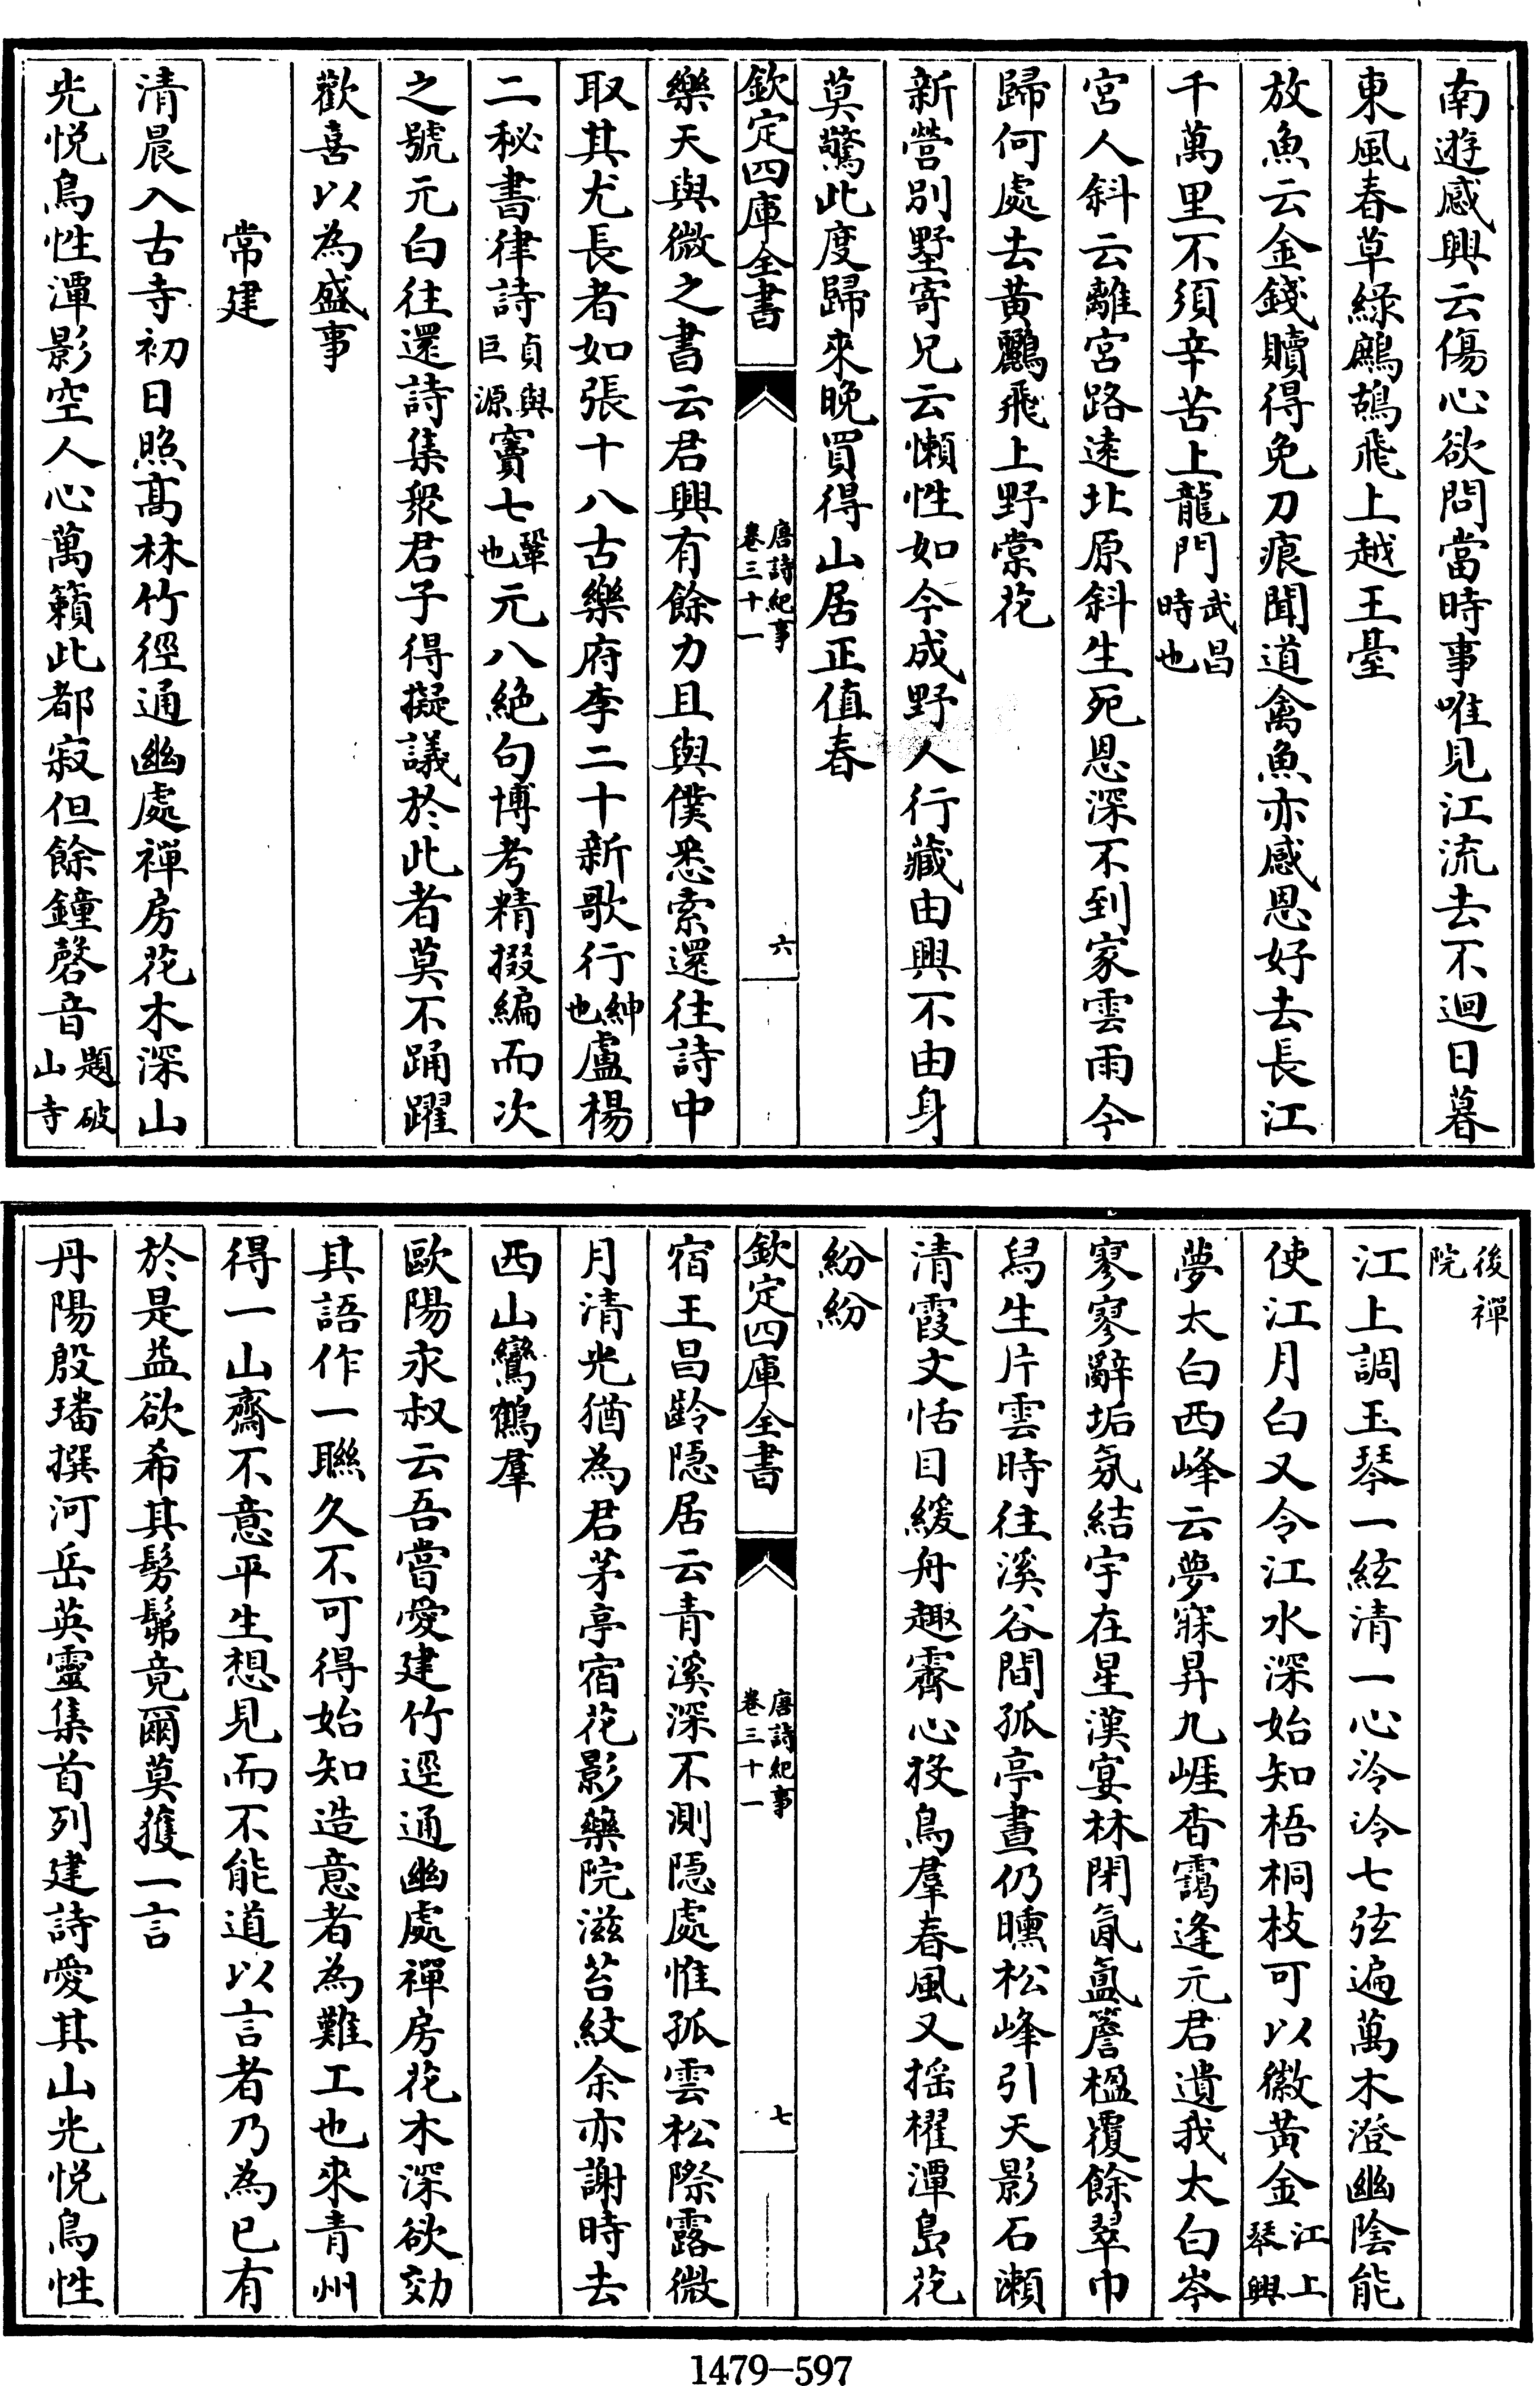 南遊感興云傷心欲問當時事唯見江流去不迴日暮
東風春草綠鷓鴣飛上越王臺
放魚云金錢贖得免刀痕聞道禽魚亦感恩好去長江
千萬里不須辛苦上龍門武昌時也
宮人斜云離宮路遠北原斜生死恩深不到家雲雨今
歸何處去黃鸝飛上野棠花
新營別墅寄兄云懶性如今成野人行藏由興不由身
莫驚此度歸來晚買得山居正值春
欽定四庫全書
唐詩紀事
卷三十一
六
樂天與微之書云君興有餘力且與僕悉索還往詩中
取其尤長者如張十八古樂府李二十新歌行紳也盧楊
二秘書律詩貞與巨源竇七鞏也元八絕句博考精掇編而次
之號元白往還詩集衆君子得擬議於此者莫不踊躍
歡喜以為盛事
常建
清晨入古寺初日照髙林竹徑通幽處禪房花木深山
光悅鳥性潭影空人心萬籟此都寂但餘鐘磬音題破山寺
後禪院
江上調玉琴一絃清一心泠泠七弦遍萬木澄幽陰能
使江月白又令江水深始知梧桐枝可以徽黃金江上琴興
夢太白西峰云夢寐昇九崕杳靄逢元君遺我太白岑
寥寥辭垢氛結宇在星漢宴林閉氤氳簷楹覆餘翠巾
舄生片雲時往溪谷間孤亭晝仍曛松峰引天影石瀨
清霞文恬目緩舟趣霽心投鳥羣春風又摇櫂潭島花
紛紛
欽定四庫全書
唐詩紀事
卷三十一
七
宿王昌齡隠居云青溪深不測隠處惟孤雲松際露微
月清光猶為君茅亭宿花影藥院滋苔紋余亦謝時去
西山鸞鶴羣
歐陽永叔云吾嘗愛建竹逕通幽處禪房花木深欲効
其語作一聯久不可得始知造意者為難工也來青州
得一山齋不意平生想見而不能道以言者乃為已有
於是益欲希其髣髴竟爾莫獲一言
丹陽殷璠撰河岳英靈集首列建詩愛其山光悅鳥性
1479-597